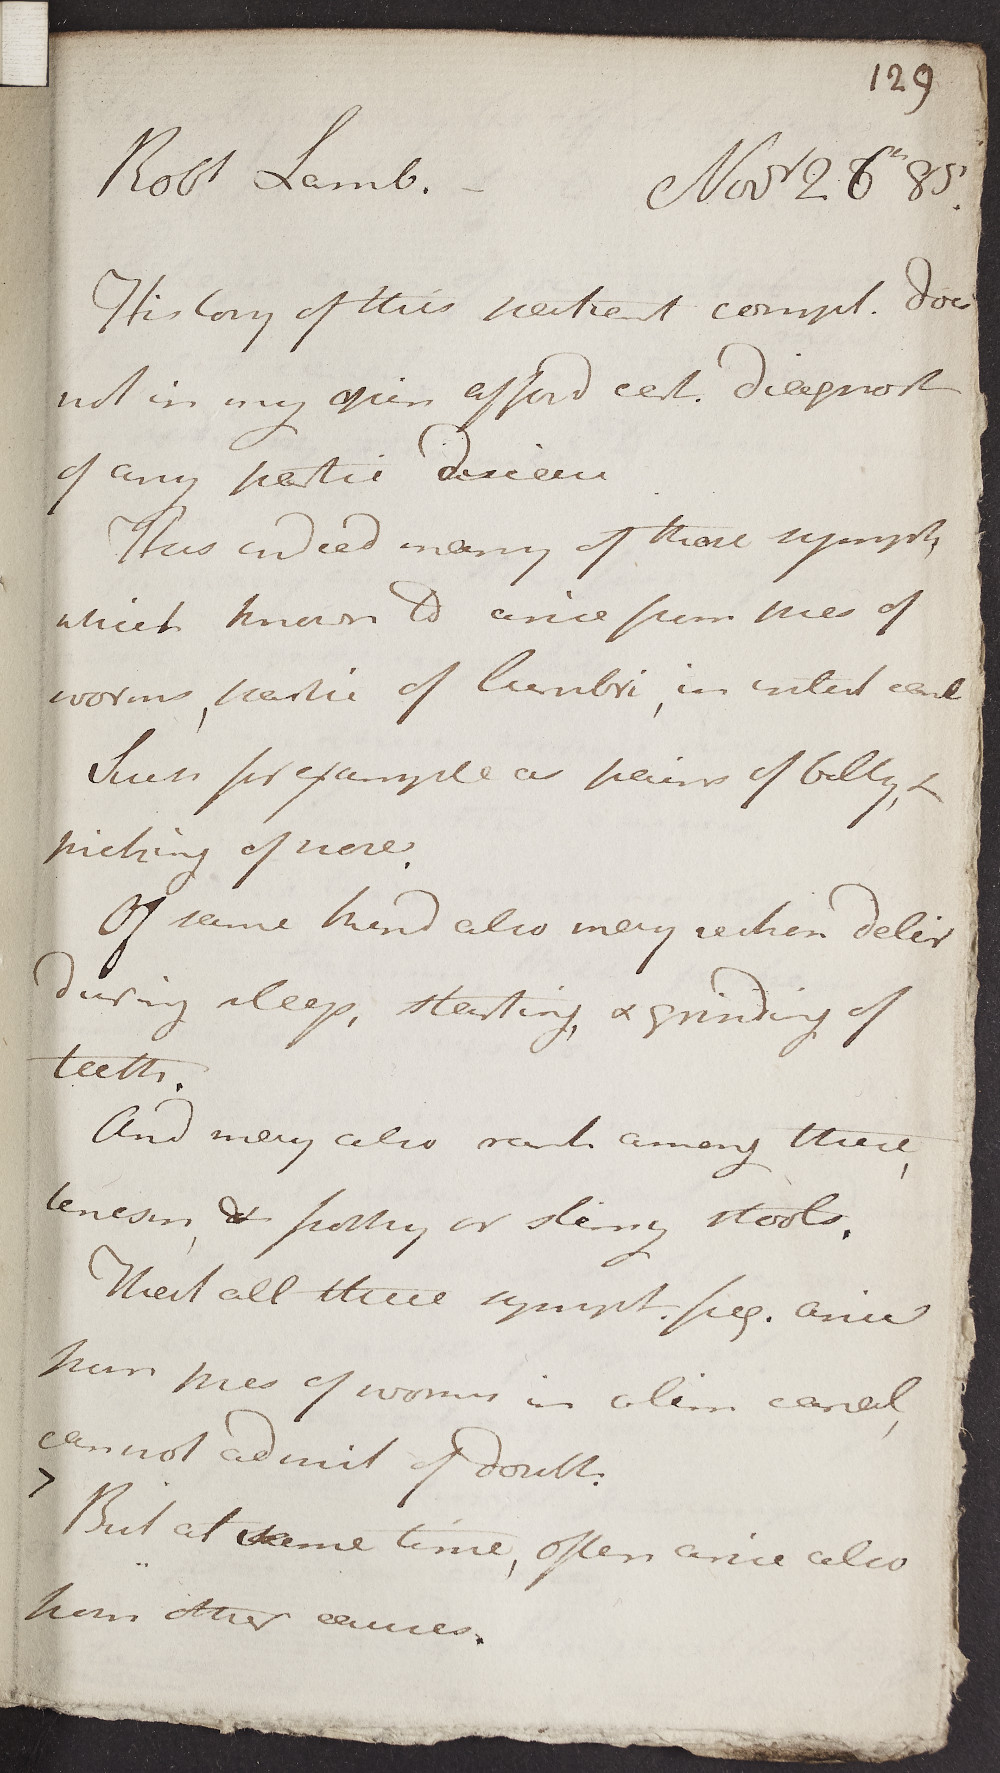 129
Robt Lamb. - Novr 26th 85.
History of this patient compl. does
not in my opin afford cert. diagnost
of any partic disease
Has indeed many of those sympt,
which known to arise from pres of
worms, partic of lumbri, in intest canl
Such for example as pains of belly, &
picking of nose.
Of same kind also may reckon delir
during sleep, starting, & grinding of
teeth.
And may also rank among these,
tenesm, & frothy or slimy stools.
That all these sympt. freq. arise
from pres of worms in alim canal,
cannot admit of doubt.
> But at same time, often arise also
from other causes.